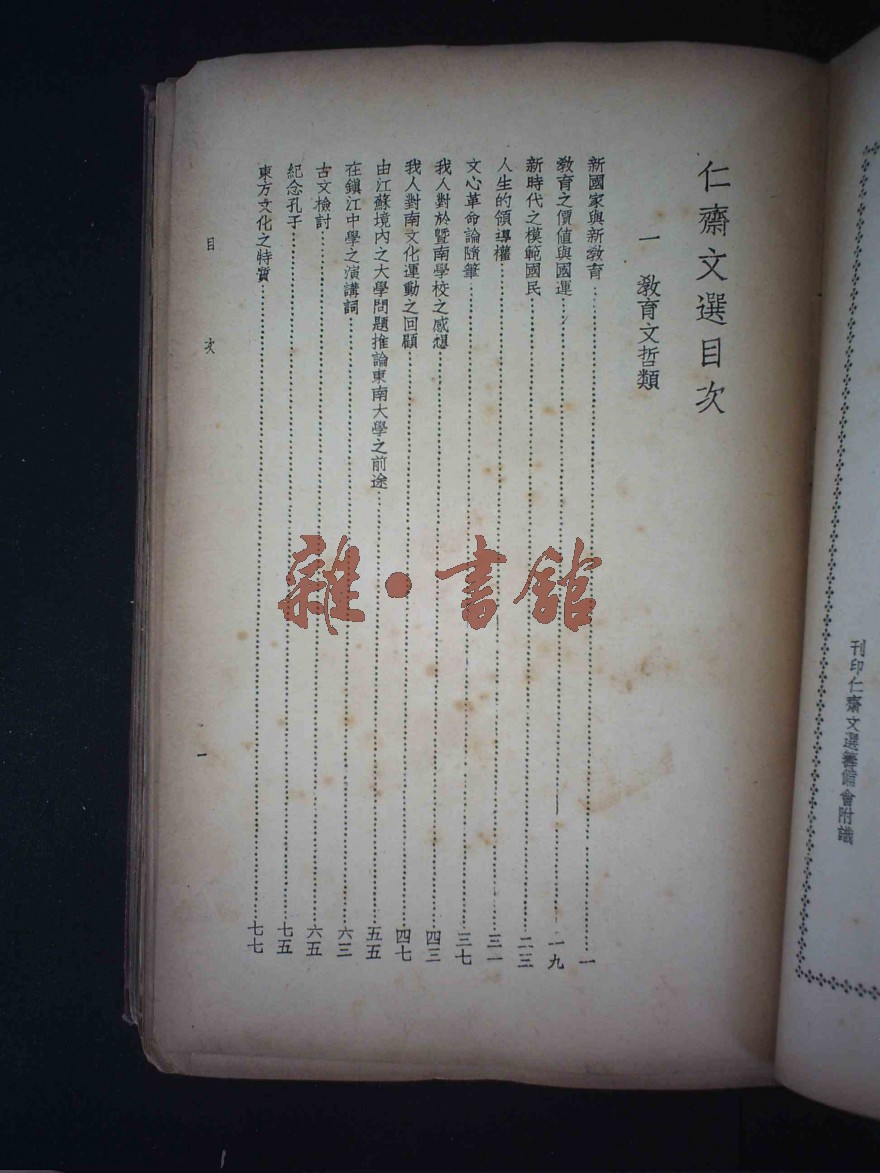 刊印仁齋文選籌備會附識
仁齋文選目次
一 教育文哲類
新國家與新教育 一
教育之價值與國運 一九
新時代之模範國民 二三
人生的領導權 三一
文心革命論隨筆 三七
我人對於暨南學校之感想 四三
我人對南文化運動之回顧 四七
由江蘇境內之大學問題推論東南大學之前途 五五
在鎮江中學之演講詞 六三
古文檢討 六五
紀念孔子 七五
東方文化之特質 七七
目次 一
雜·書館